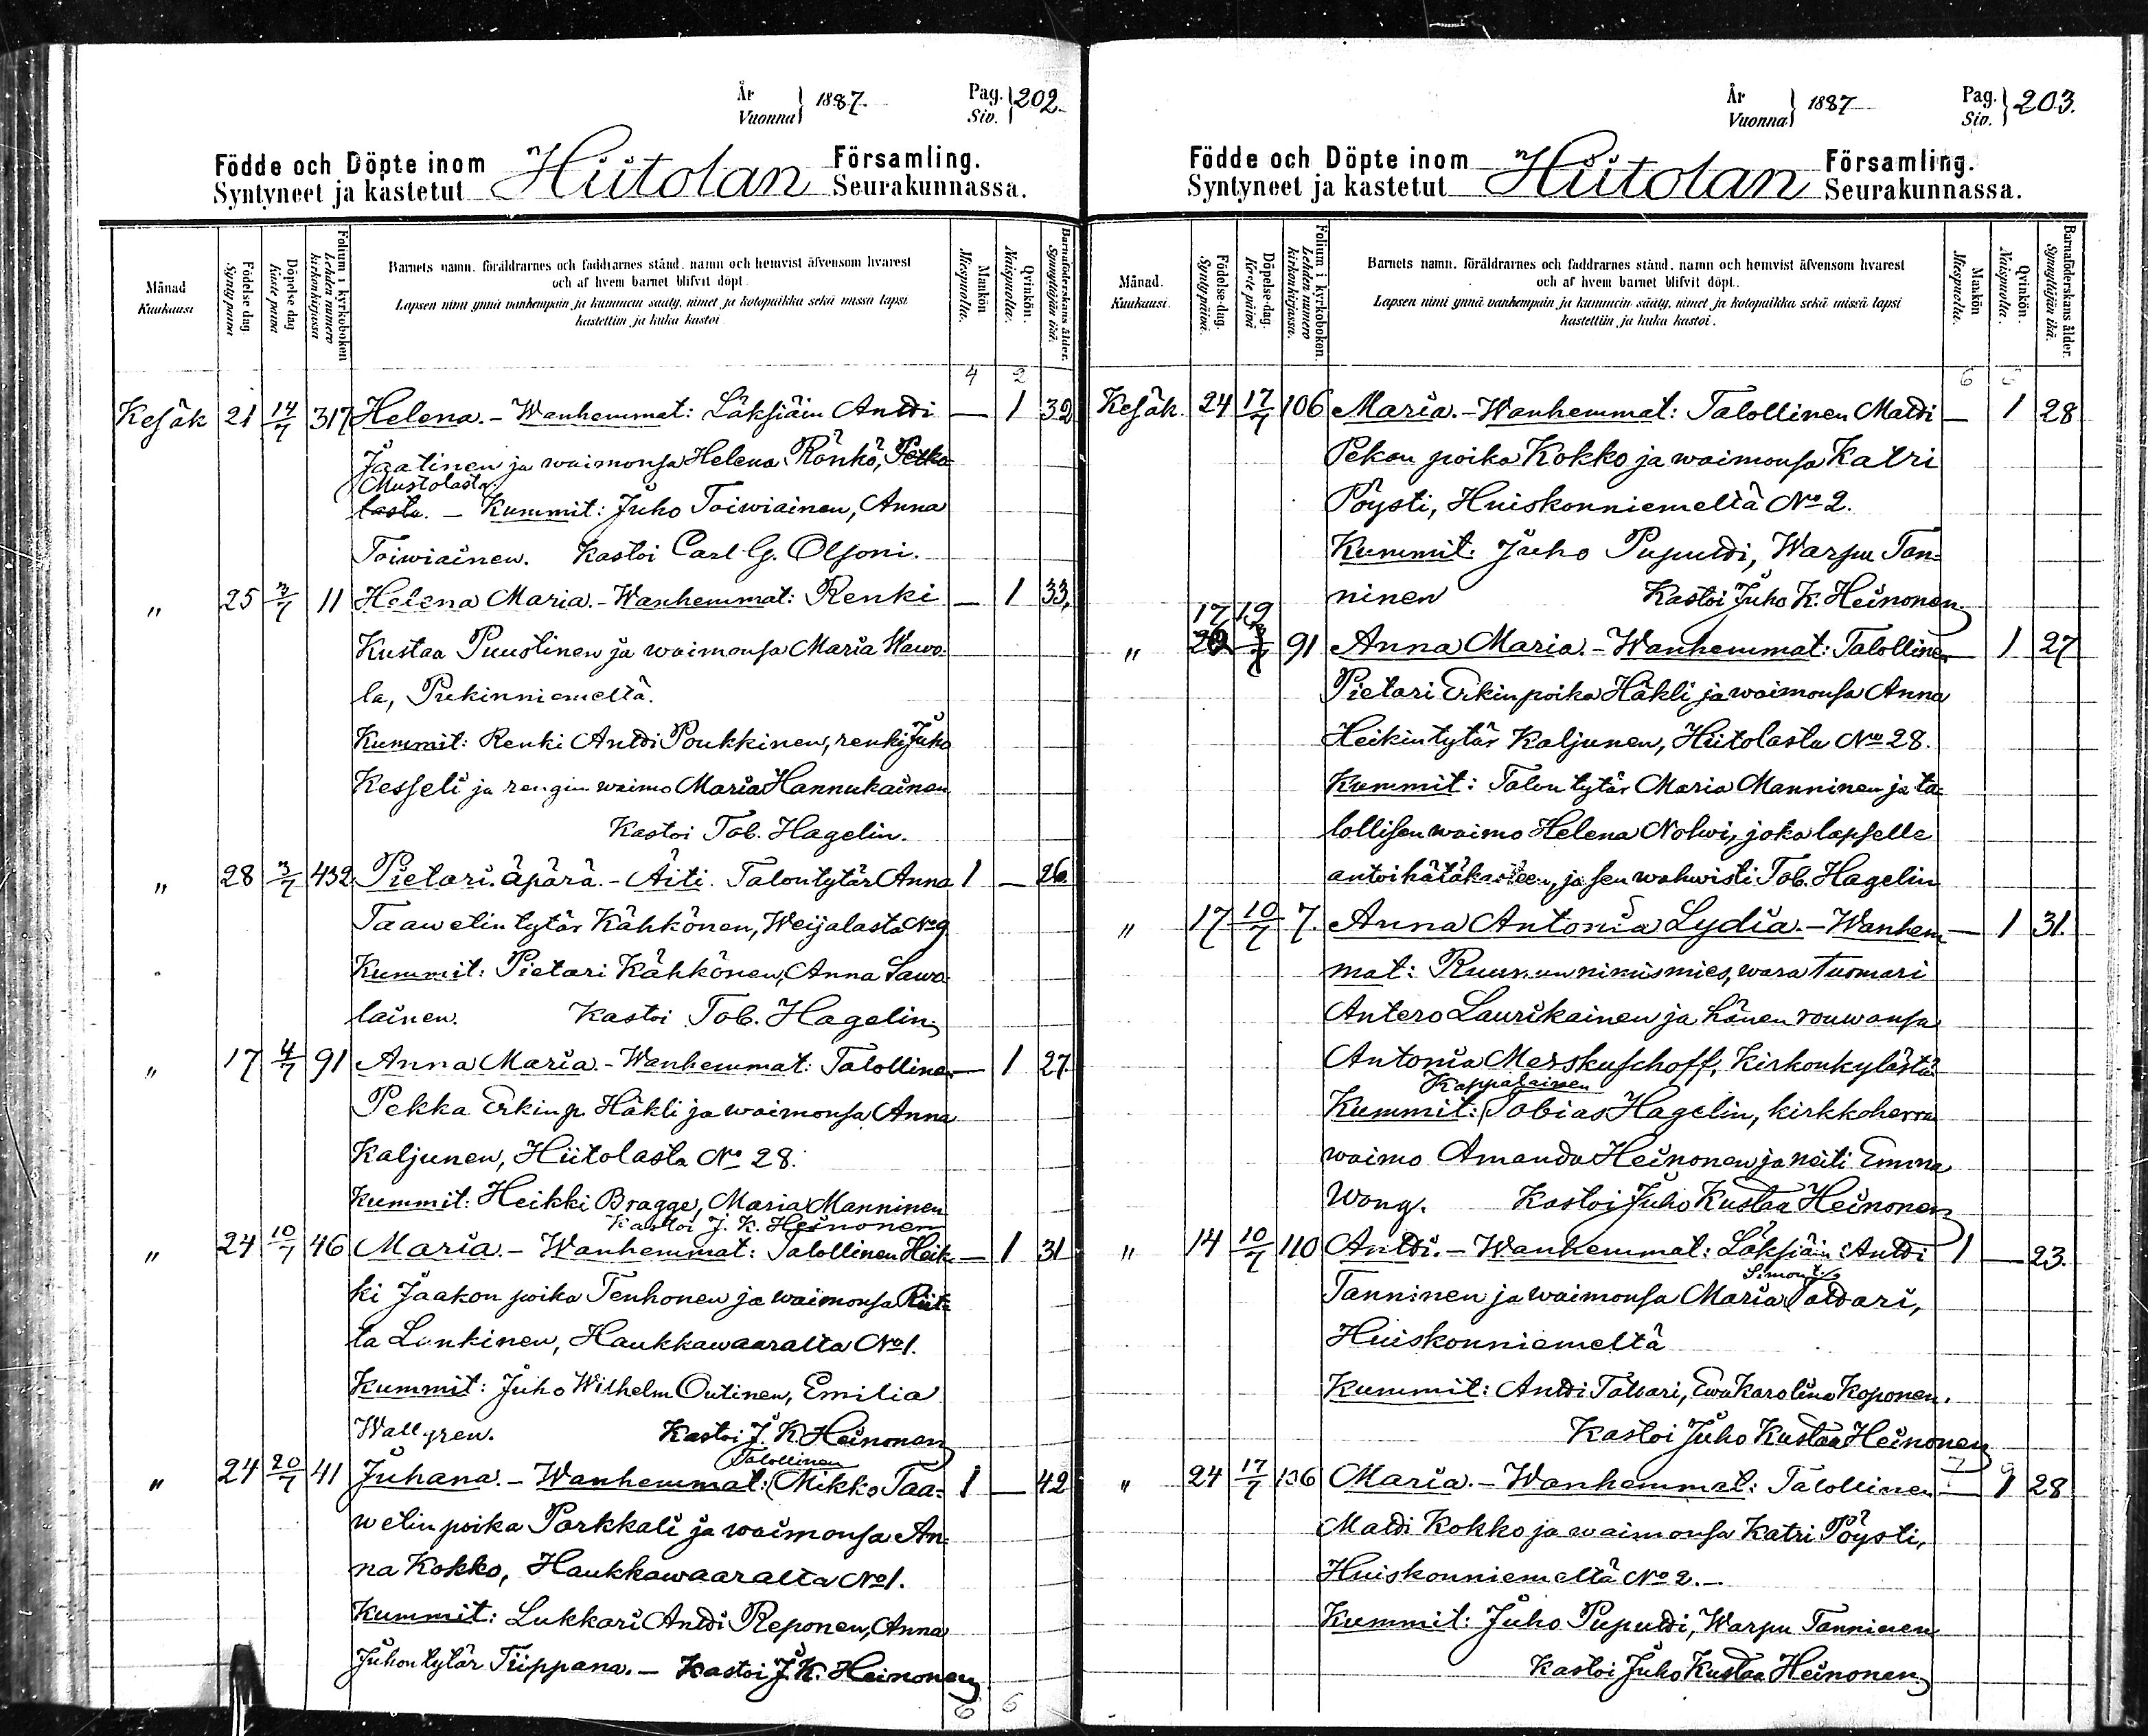 År
Vuonna } 1887.
Pag.
Siv. } 202
Födde och Döpte inom
Syntyneet ja kastetut Hiitolan Församling.
Seurakunnassa.
Månad
Kuukausi
Födelse dag
Synty päivä
Döpelse dag
Kaste päivä
Folium i kyrkobokon
Lehden numero
kirkonkirjassa
Barnets namn, föräldrarnes och faddrarnes stånd, namn och hemvist äfvensom hvarest
och af hvem barnet blifvit döpt.
Lapsen nimi ynnä vanhempain ja kummein sääty, nimet ja kotopaikka sekä missä lapsi
kastettiin ja kuka kastoi.
Mankön
Miespuolia.
Qvinkön.
Naispuolia.
Barnaföderskans ålder.
Synnyttäjän ikä.
4 2
Kesäk 21 14/7 317 Helena. - Wanhemmat: Läksiäin Andi — 1 32
Jaatinen ja waimonsa Helena Rönkö, Petko
Mustolasta.
lasta. — Kummit: Juho Toiwiainen, Anna
Toiwiainen. Kastoi Carl G. Olsoni.
" 25 3/7 11 Helena Maria. - Wanhemmat: Renki — 1 33,
Kustaa Puustinen ja waimonsa Maria Wawo-
la, Pukinniemeltä.
Kummit: Renki Andi Poukkinen, renki Juho
Kesseli ja rengin waimo Maria Hannukainen
Kastoi Tob. Hagelin.
" 28 3/7 432 Pietari. äpärä. - Äiti. Talontytär Anna 1 — 26
Taawetin tytär Kähkönen, Weijalasta No 9
Kummit: Pietari Kähkönen, Anna Sawo-
lainen. Kastoi Tob. Hagelin
" 17 4/7 91 Anna Maria. - Wanhemmat: Talollinen — 1 27
Pekka Erkinp. Häkli ja waimonsa Anna
Kaljunen, Hiitolasta No 28.
Kummit: Heikki Bragge, Maria Manninen
Kastoi J. K. Heinonen
" 24 10/7 46 Maria. - Wanhemmat: Talollinen Heik- — 1 31
ki Jaakon poika Tenhonen ja waimonsa Riit-
ta Lankinen, Haukkawaaralta No 1.
Kummit: Juho Wilhelm Outinen, Emilia
Wallgren. Kastoi J. K. Heinonen
Talollinen
" 24 20/7 41 Juhana. - Wanhemmat: Mikko Taa- 1 — 42
wetin poika Parkkali ja waimonsa An-
na Kokko, Haukkawaaralta No 1.
Kummit: Lukkari Andi Reponen, Anna
Juhontytär Tiippana. — Kastoi J. K. Heinonen
6 6
År
Vuonna } 1887
Pag.
Siv. } 203.
Födde och Döpte inom
Syntyneet ja kastetut Hiitolan Församling.
Seurakunnassa.
Månad.
Kuukausi.
Födelse-dag.
Synty päivä.
Döpelse-dag.
Kaste päivä
Folium i kyrkobokon.
Lehden numero
kirkonkirjassa.
Barnets namn, föräldrarnes och faddrarnes stånd, namn och hemvist äfvensom hvarest
och af hvem barnet blifvit döpt..
Lapsen nimi ynnä vanhempain ja kummein sääty, nimet ja kotopaikka sekä missä lapsi
kastettiin ja kuka kastoi.
Mankön
Miespuolia.
Qvinkön.
Naispuolia.
Barnaföderskans ålder.
Synnyttäjän ikä.
Kesäk. 24 17/7 106 Maria. - Wanhemmat: Talollinen Matti — 1 28
Pekan poika Kokko ja waimonsa Katri
Pöysti, Huiskonniemeltä No 2.
Kummit: Juho Puputti, Warpu Tan-
ninen Kastoi Juho K. Heinonen.
17 19
" 91 Anna Maria. - Wanhemmat: Talollinen — 1 27
Pietari Erkinpoika Häkli ja waimonsa Anna
Heikintytär Kaljunen, Hiitolasta No 28.
Kummit: Talontytär Maria Manninen ja ta-
lollisen waimo Helena Nolwi, joka lapselle
antoi hätäkasteen, ja sen wahwisti Tob. Hagelin
" 17 10/7 7. Anna Antonia Lydia. - Wanhem- — 1 31.
mat: Ruununnimismies, wara tuomari
Antero Laurikainen ja hänen rouwansa
Antonia Merskuschoff, Kirkonkylästä
Kappalainen
Kummit: Tobias Hagelin, kirkkoherra
waimo Amanda Heinonen ja neiti Emma
Wong. Kastoi Juho Kustaa Heinonen
" 14 10/7 110 Antti. - Wanhemmat: Läksiäin Antti 1 — 23.
Simont.
Tanninen ja waimonsa Maria Tattari,
Huiskonniemeltä
Kummit: Antti Tattari, Ewa Karolina Koponen.
Kastoi Juho Kustaa Heinonen
" 24 17/7 106 Maria. - Wanhemmat: Talollinen — 1 28
Matti Kokko ja waimonsa Katri Pöysti,
Huiskonniemeltä No 2. —
Kummit: Juho Puputti, Warpu Tanninen
Kastoi Juho Kustaa Heinonen